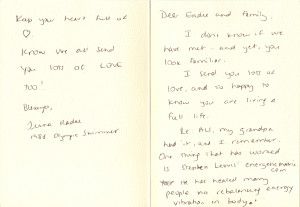 Keep your heart full of
♡
Know we all send
you lots of LOVE
too!
Always,
1984 Olympic Swimmer
Dear Eadie and family,
I don't know if we
have met - and yet, you
look familiar.
I send you lots of
love, and so happy to
know you are living a
full life.
Re ALS, my grandpa
had it, and I remember.
One thing that has worked
is Stephen Lewis' energetic
He has healed many
people re rebalancing energy
vibration in body.